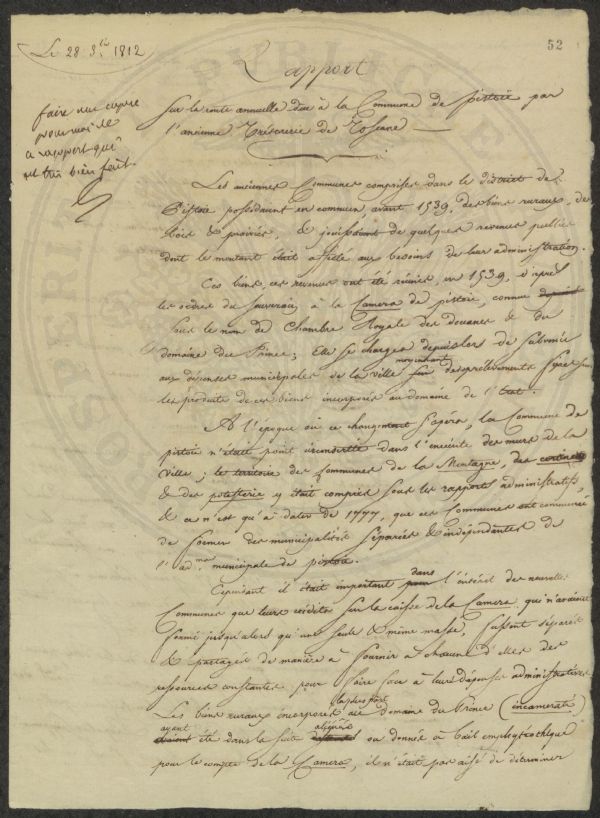 Le 28 8bre 1812
52
Rapport
faire une copie
pour moi de
ce rapport qui
est très bien fait.
Sur la rente annuelle due à la Commune de Pistoie par
l'ancienne Trésorerie de Toscane
Les anciennes Communes comprises dans le district de
Pistoie possédaient en commun, avant 1539, des biens ruraux, des
bois & prairies, & jouissaient de quelques revenus publics
dont le montant était affecté aux besoins de leur administration.
Ces biens, ces revenus ont été réunis, en 1539, d'après
les ordres du Souverain, à la Camera de pistoie, connue
sous le nom de Chambre Royale des douanes & du
domaine du Prince; Elle se chargea depuis lors de subvenir
aux dépenses municipales de la ville moyennant des prélèvements fixés sur
les produits de ces biens incorporés au domaine de l'Etat.
A l'époque où ce changement s'opéra, la Commune de
pistoie n'était point circonscrite dans l'enceinte des murs de la
Ville; le territoire des Communes de la Montagne, des
& des potesterie y était compris sous les rapports administratifs,
& ce n'est qu'à dater de 1777, que ces Communes ont commencé
de former des municipalités séparées & indépendantes de
l'adm.on municipale de pistoie.
Cependant il était important dans l'intérêt des nouvelles
Communes que leurs crédits sur la caisse de la Camera qui n'avaient
formé jusqu'alors qu'une seule & même masse, fussent séparés
& partagés de manière à fournir à chacune d'elles des
ressources constantes pour faire face à leurs dépenses administratives.
Les biens ruraux incorporés au domaine du Prince (incamerati)
ayant été dans la suite la plus part aliénés ou donnés à bail emphytéotique
pour le compte de la Camera, il n'était pas aisé de déterminer